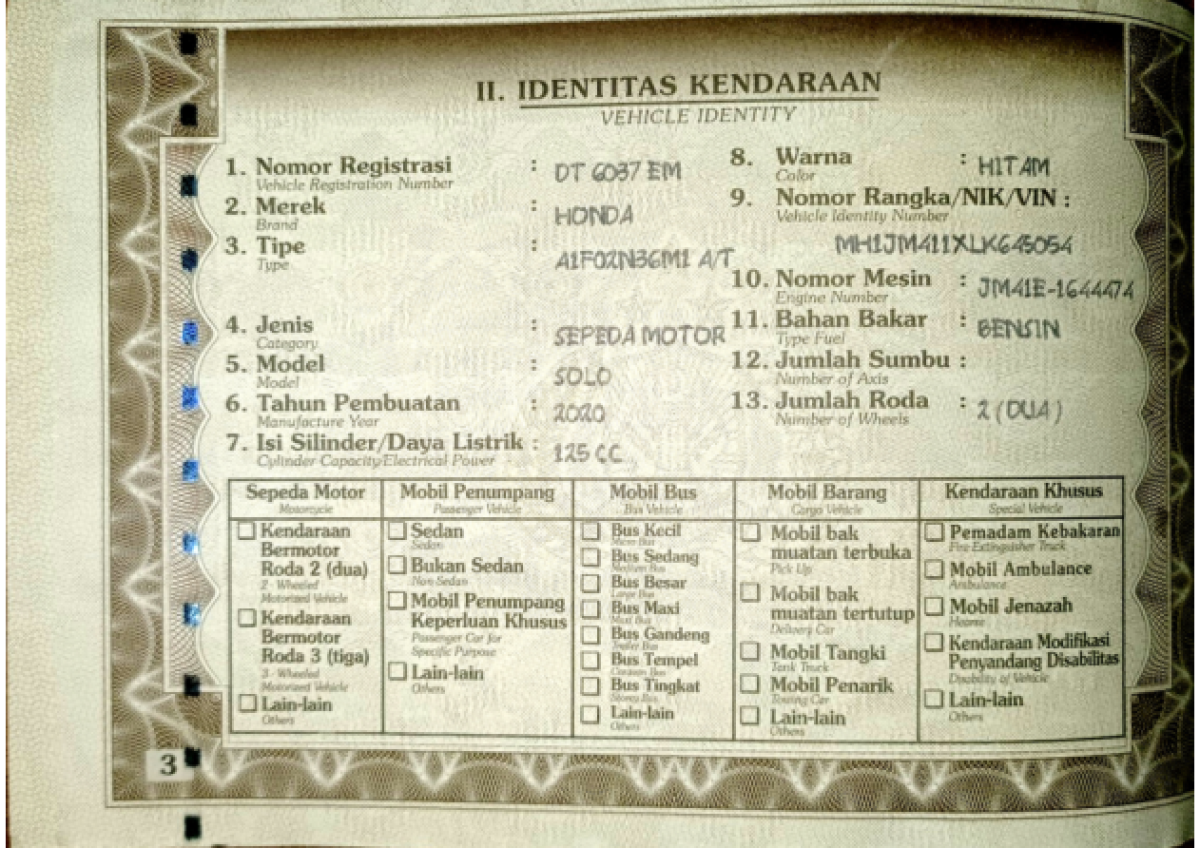 II. IDENTITAS KENDARAAN
VEHICLE IDENTITY
1. Nomor Registrasi : DT 6037 EM
Vehicle Registration Number
2. Merek : HONDA
Brand
3. Tipe : A1F02N36M1 A/T
Type
4. Jenis : SEPEDA MOTOR
Category
5. Model : SOLO
Model
6. Tahun Pembuatan : 2020
Manufacture Year
7. Isi Silinder/Daya Listrik : 125 CC
Cylinder Capacity/Electrical Power
8. Warna : HITAM
Color
9. Nomor Rangka/NIK/VIN :
Vehicle Identity Number
MH1JM411XLK645054
10. Nomor Mesin : JM41E-1644474
Engine Number
11. Bahan Bakar : BENSIN
Type Fuel
12. Jumlah Sumbu :
Number of Axis
13. Jumlah Roda : 2 (DUA)
Number of Wheels
Sepeda Motor
Motorcycle
Kendaraan
Bermotor
Roda 2 (dua)
2 - Wheeled
Motorized Vehicle
Kendaraan
Bermotor
Roda 3 (tiga)
3 - Wheeled
Motorized Vehicle
Lain-lain
Others
Mobil Penumpang
Passenger Vehicle
Sedan
Sedan
Bukan Sedan
Non Sedan
Mobil Penumpang
Keperluan Khusus
Passenger Car for
Specific Purpose
Lain-lain
Others
Mobil Bus
Bus Vehicle
Bus Kecil
Micro Bus
Bus Sedang
Medium Bus
Bus Besar
Large Bus
Bus Maxi
Maxi Bus
Bus Gandeng
Trailer Bus
Bus Tempel
Bus
Bus Tingkat
Bus
Lain-lain
Others
Mobil Barang
Cargo Vehicle
Mobil bak
muatan terbuka
Pick Up
Mobil bak
muatan tertutup
Delivery Car
Mobil Tangki
Tank Truck
Mobil Penarik
Towing Car
Lain-lain
Others
Kendaraan Khusus
Special Vehicle
Pemadam Kebakaran
Fire Extinguisher Truck
Mobil Ambulance
Ambulance
Mobil Jenazah
Hearse
Kendaraan Modifikasi
Penyandang Disabilitas
Disability of Vehicle
Lain-lain
Others
3